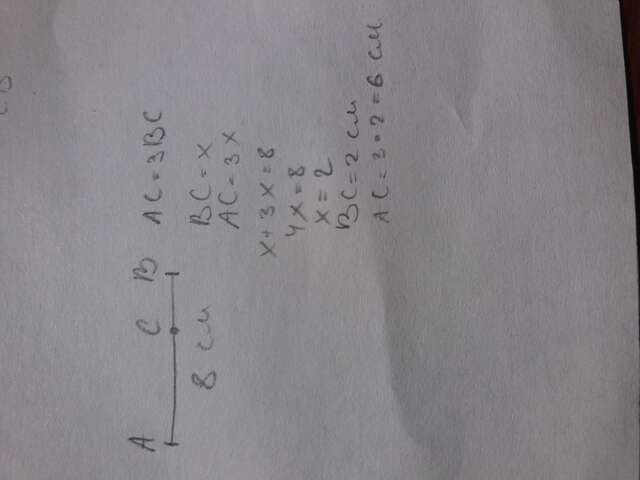 A C B AC = 3BC
8 см
BC = x
AC = 3x
x + 3x = 8
4x = 8
x = 2
BC = 2 см
AC = 3 • 2 = 6 см